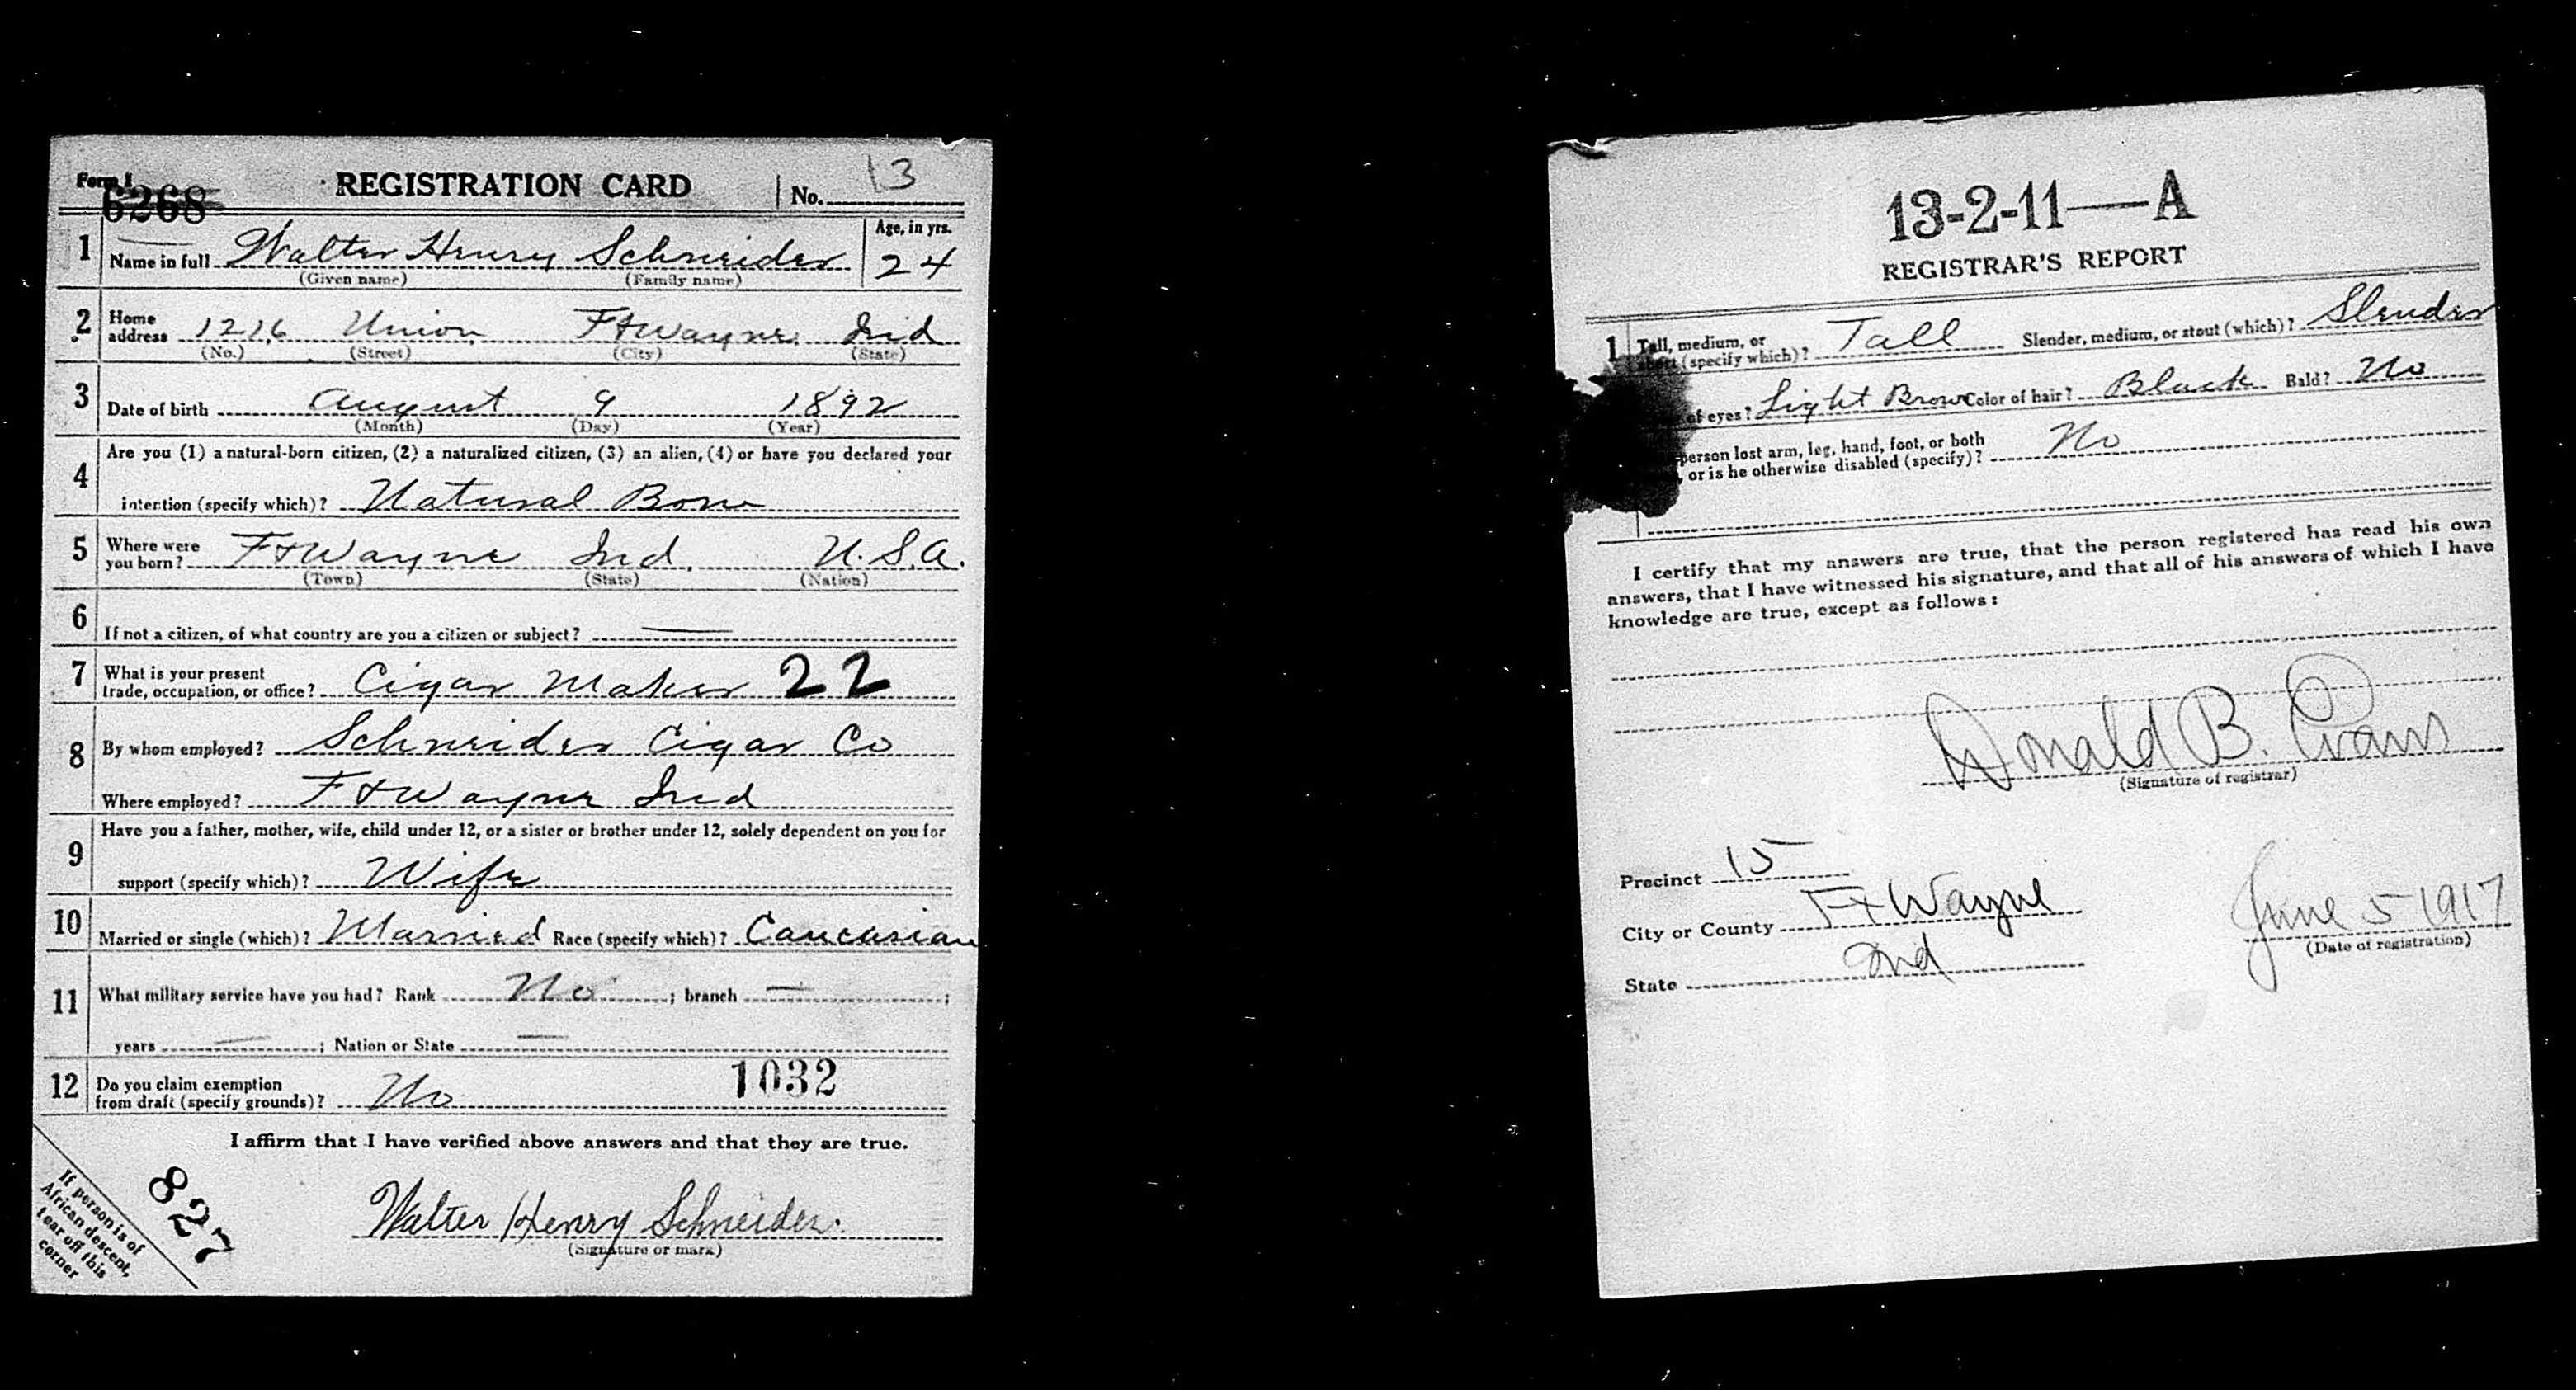 Form 1 REGISTRATION CARD No. 13
6268
1 Name in full Walter Henry Schneider Age, in yrs. 24
(Given name) (Family name)
2 Home address 1216 Union Ft Wayne, Ind
(No.) (Street) (City) (State)
3 Date of birth August 9 1892
(Month) (Day) (Year)
4 Are you (1) a natural-born citizen, (2) a naturalized citizen, (3) an alien, (4) or have you declared your
intention (specify which)? Natural Born
5 Where were you born? Ft Wayne Ind. U.S.A.
(Town) (State) (Nation)
6 If not a citizen, of what country are you a citizen or subject? —
7 What is your present trade, occupation, or office? Cigar Maker 22
8 By whom employed? Schneider Cigar Co
Where employed? Ft Wayne Ind
9 Have you a father, mother, wife, child under 12, or a sister or brother under 12, solely dependent on you for
support (specify which)? Wife
10 Married or single (which)? Married Race (specify which)? Caucasian
11 What military service have you had? Rank No ; branch — ;
years — ; Nation or State —
12 Do you claim exemption from draft (specify grounds)? No 1032
I affirm that I have verified above answers and that they are true.
827
Walter Henry Schneider.
(Signature or mark)
If person is of
African descent,
tear off this
corner
13-2-11—A
REGISTRAR'S REPORT
1 Tall, medium, or short (specify which)? Tall Slender, medium, or stout (which)? Slender
of eyes? Light Brown Color of hair? Black Bald? No
person lost arm, leg, hand, foot, or both
, or is he otherwise disabled (specify)? No
I certify that my answers are true, that the person registered has read his own
answers, that I have witnessed his signature, and that all of his answers of which I have
knowledge are true, except as follows:
Donald B. Evans
(Signature of registrar)
Precinct 15
City or County Ft Wayne
State Ind
June 5 1917
(Date of registration)